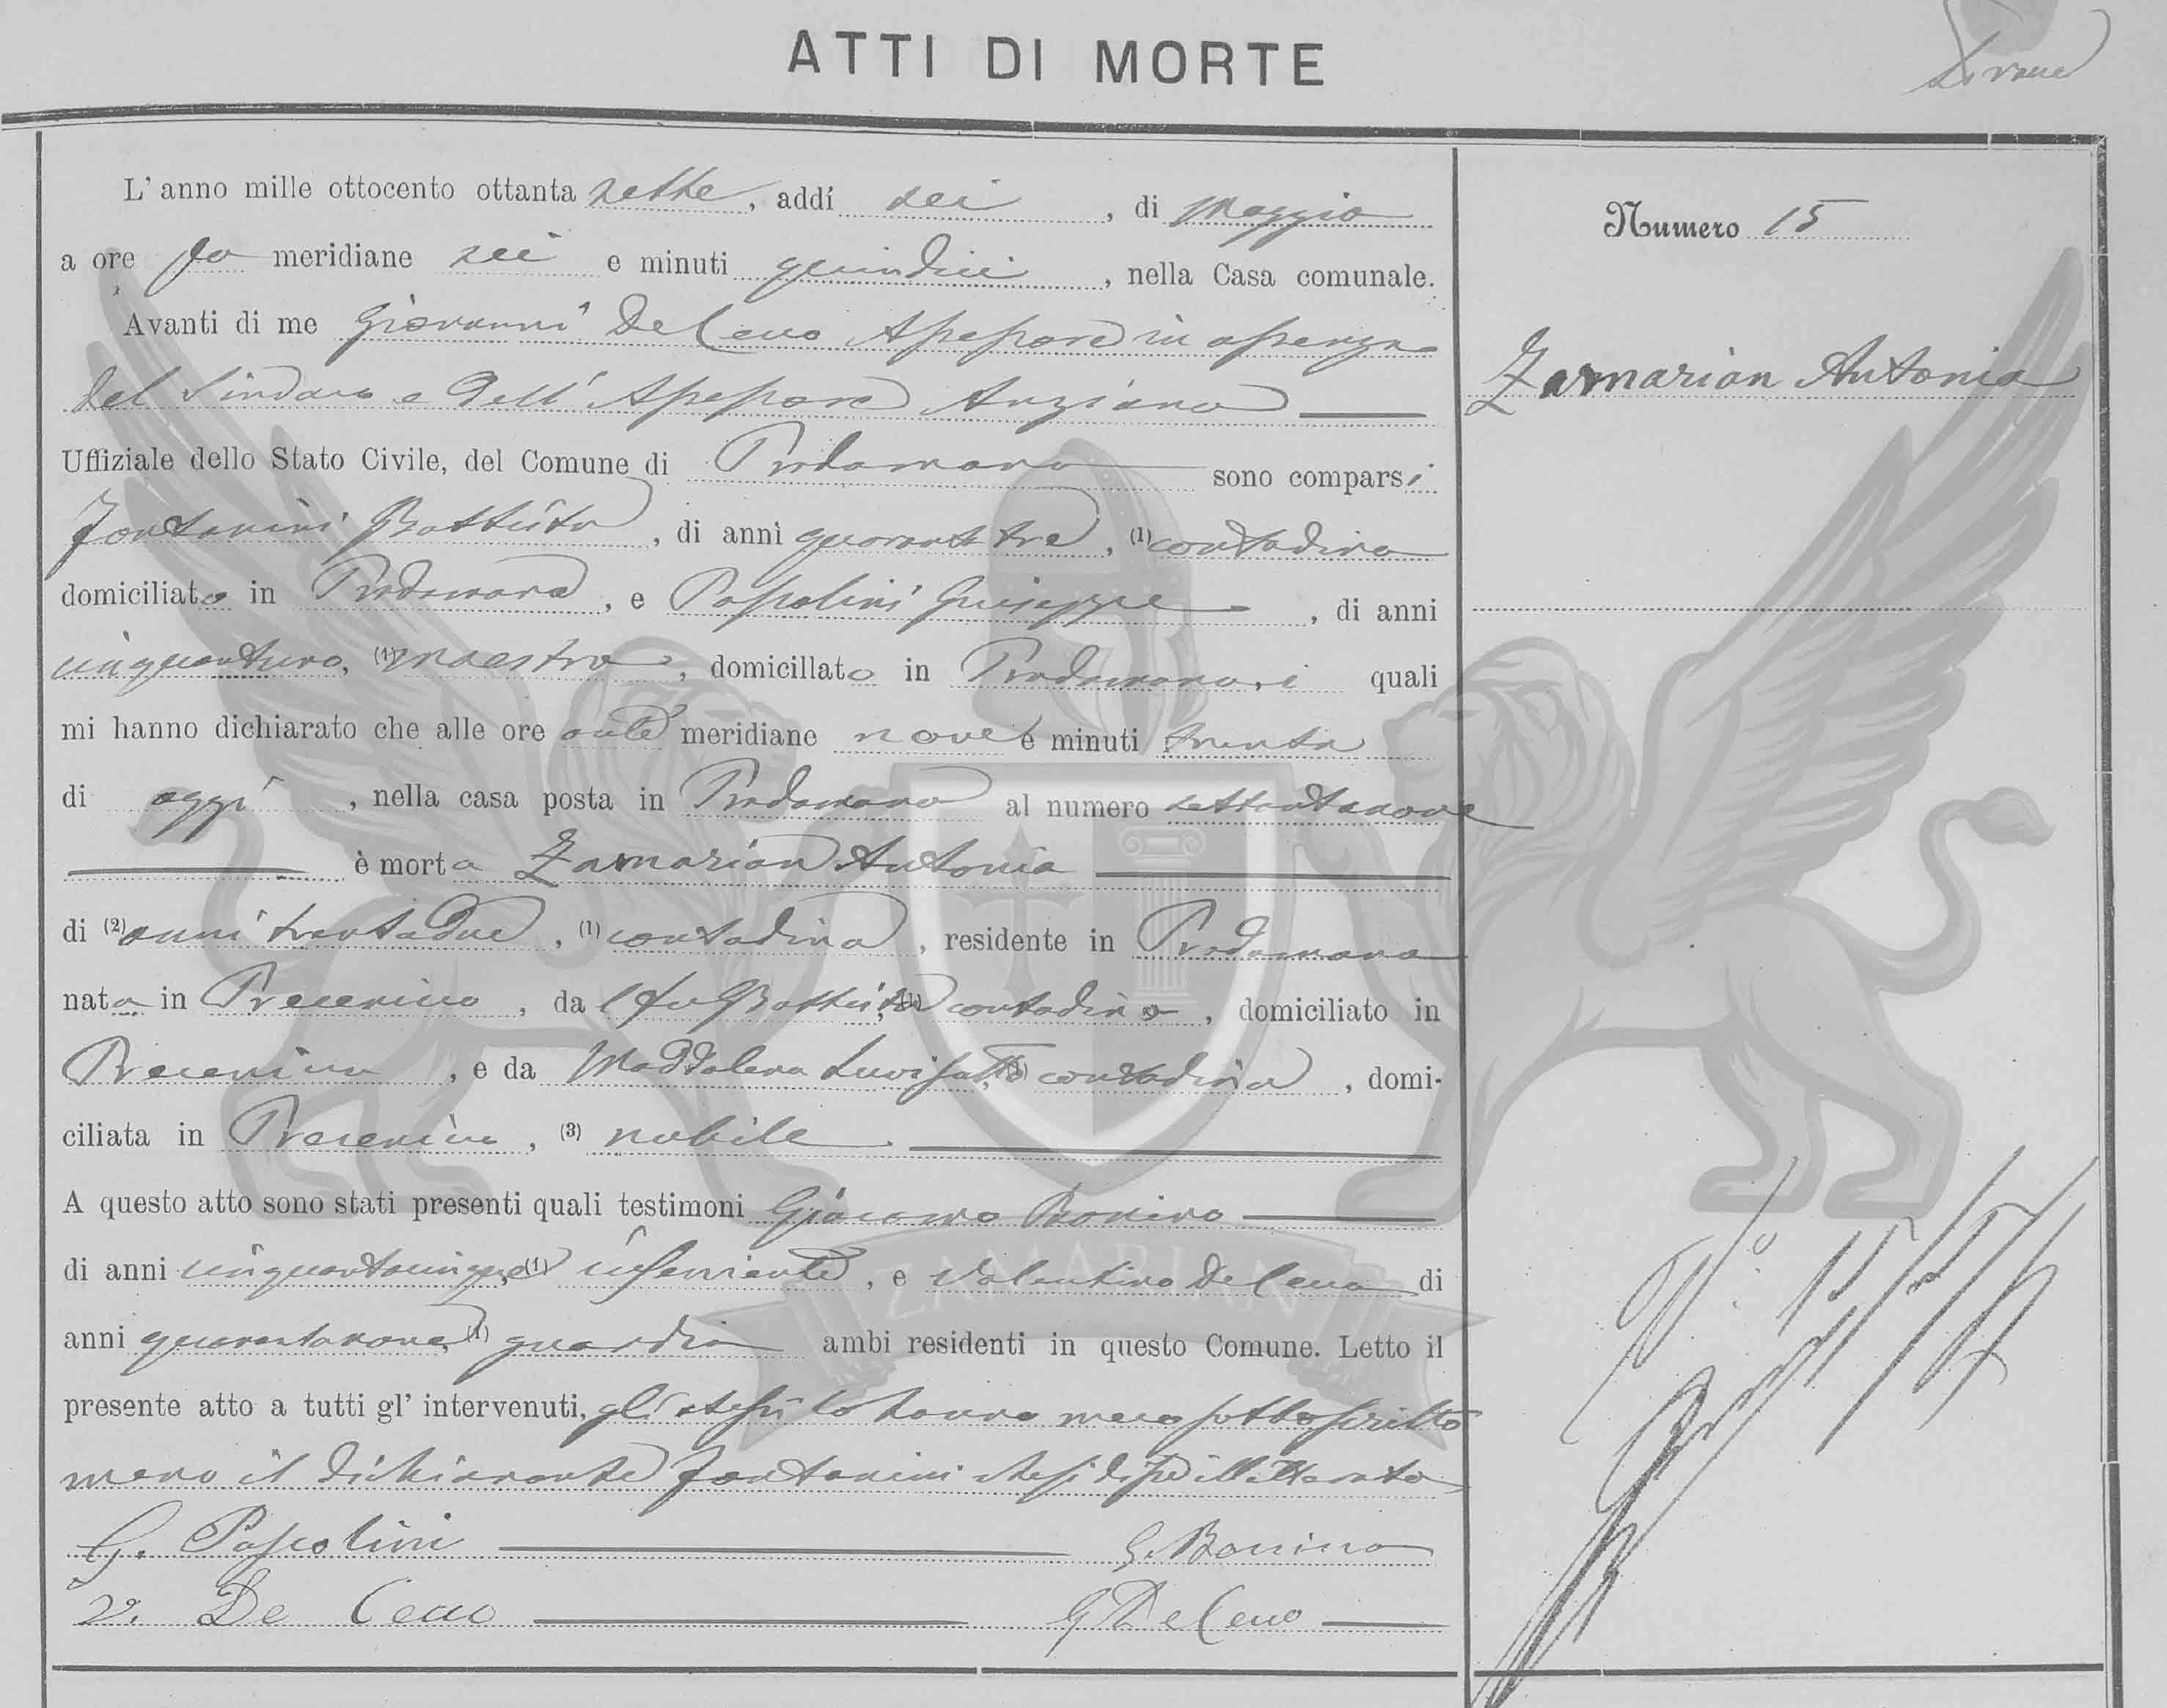 ATTI DI MORTE
L' anno mille ottocento ottanta sette, addì sei, di Maggio
Numero 15
a ore po meridiane sei e minuti quindici, nella Casa comunale.
Avanti di me Giovanni De Ceco Assessore in assenza
Zamarian Antonia
del Sindaco e dell' Assessore Anziano
Uffiziale dello Stato Civile, del Comune di Pradamano sono comparsi
Fontanini Battista, di anni quarantatre, (1) contadino
domiciliato in Pradamano, e Pascolini Giuseppe, di anni
cinquantuno, (1) maestro, domicillato in Pradamano, i quali
mi hanno dichiarato che alle ore ante meridiane nove e minuti trenta
di oggi, nella casa posta in Pradamano al numero settantanove
è morta Zamarian Antonia
di (2) anni trentadue, (1) contadina, residente in Pradamano
nata in Precenico, da fu Battista (1) contadino, domiciliato in
Precenico, e da Maddalena contadina, domi-
ciliata in Precenico, (3) nubile
A questo atto sono stati presenti quali testimoni Giacomo Bonino
di anni cinquantacinque (1) inserviente, e Valentino De Ceco di
anni quarantanove (1) guardia ambi residenti in questo Comune. Letto il
presente atto a tutti gl' intervenuti, gli stessi lo hanno meco sottoscritto
meno il dichiarante Fontanini illetterato
G. Pascolini G. Bonino
V. De Ceco G De Ceco
N.° 15
ZAMARIAN